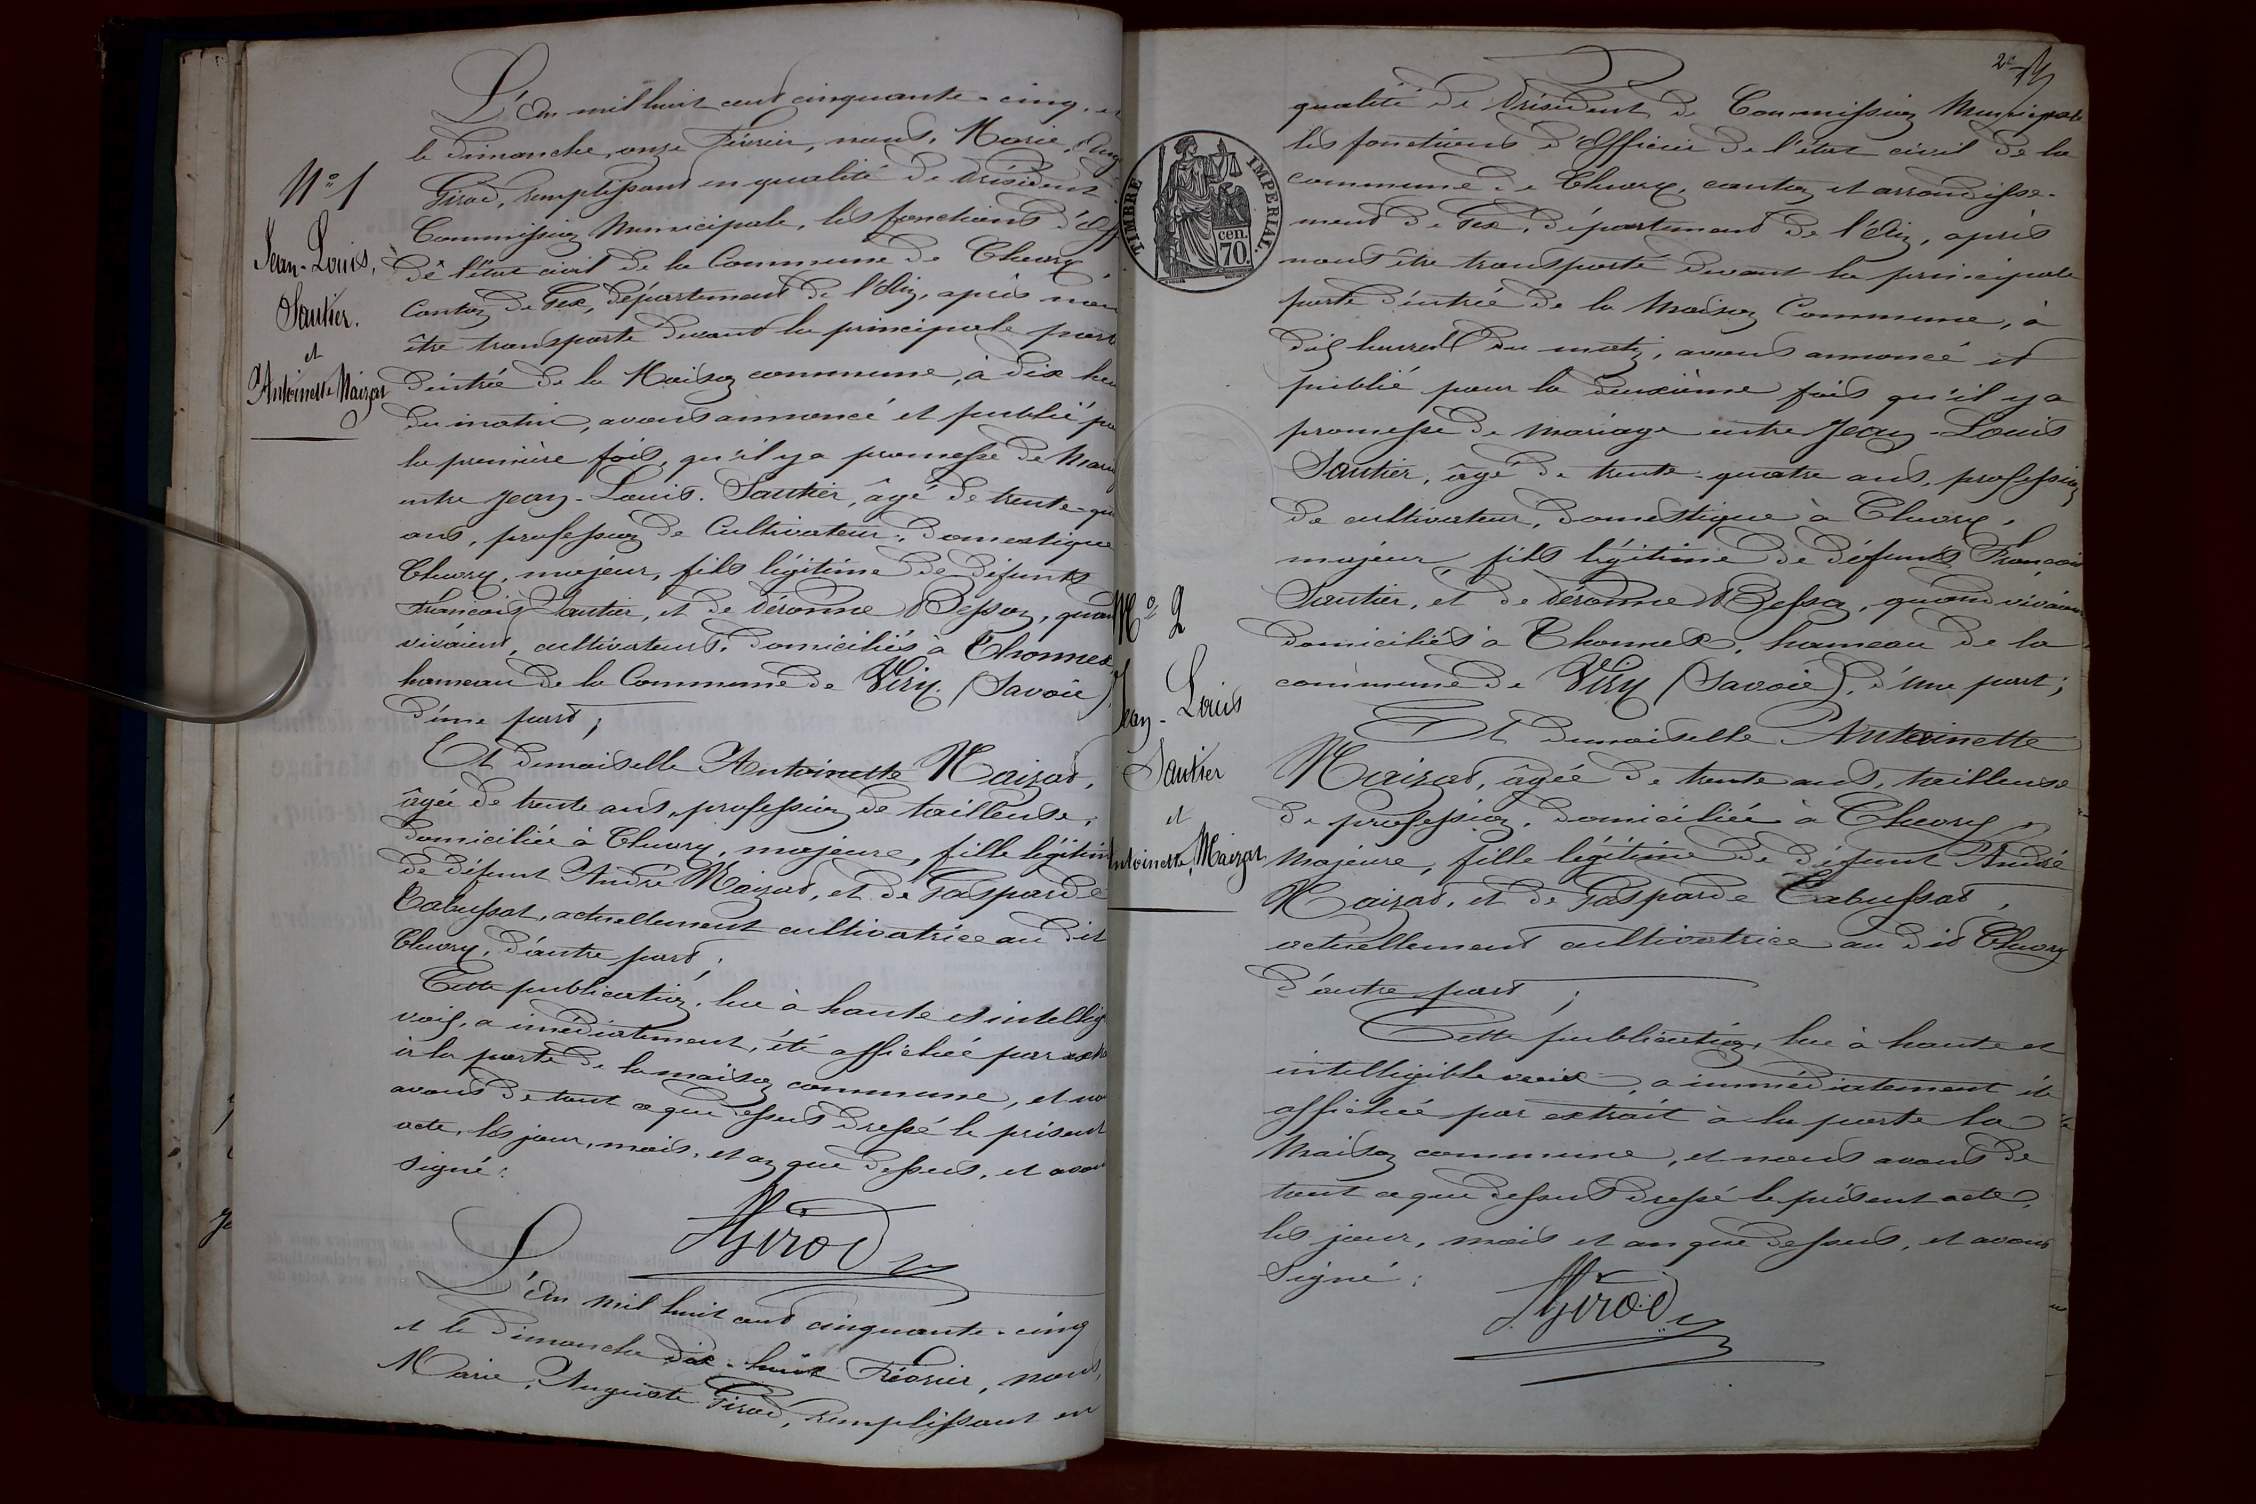 N° 1
Jean-Louis,
Sautier.
et
Antoinette Maizat
L'an mil huit cent cinquante-cinq, et
le dimanche, onze Février, nous, Marie, Aug
Girod, remplissant en qualité de Président
Commission Municipale, les fonctions d'Off
de l'état civil de la Commune de Chevry,
Canton de Gex, département de l'Ain, après nou
être transporté devant la principale port
d'entrée de la Maison commune, à dix heu
du matin, avons annoncé et publié po
la première fois, qu'il y a promesse de Mari
entre Jean-Louis. Sautier, âgé de trente-qu
ans, profession de Cultivateur, domestique
Chevry, majeur, fils légitime de défunts
François Sautier, et de Péronne Besson, quan
vivaient, cultivateurs, domiciliés à Thonnex
hameau de la Commune de Viry. (Savoie)
d'une part;
Et demoiselle Antoinette Maizat,
âgée de trente ans, profession de tailleuse,
domiciliée à Chevry, majeure, fille légitim
de défunt André Maizat, et de Gasparde
Cabussat, actuellement cultivatrice au dit
Chevry, d'autre part;
Cette publication, lue à haute et intellig
voix, a imédiatement, été affichée par extr
à la porte de la maison commune, et no
avons de tout ce que dessus dressé le présent
acte, les jour, mois, et an que dessus, et avon
signé:
AGirod
L'an mil huit cent cinquante-cinq
et le dimanche dix-huit Février, nous,
Marie, Auguste Girod, remplissant en
2e
TIMBRE IMPERIAL.
70 cen.
N° 2
Jean-Louis
Sautier
et
Antoinette, Maizat
qualité de Président de Commission Municipale
les fonctions d'Officier de l'état civil de la
commune de Chevry, canton et arrondisse-
ment de Gex, département de l'Ain, après
nous être transporté devant la principale
porte d'entrée de la Maison Commune, à
dix heures du matin, avons annoncé et
publié pour la deuxième fois qu'il y a
promesse de mariage entre Jean-Louis
Sautier, âgé de trente-quatre ans, profession
de cultivateur, domestique à Chevry,
majeur, fils légitime de défunts François
Sautier, et de Péronne Besson, quand vivaient
domiciliés à Thonnex, hameau de la
commune de Viry (Savoie), d'une part;
Et demoiselle Antoinette
Maizat, âgée de trente ans, tailleuse
de profession, domiciliée à Chevry,
majeure, fille légitime de défunt André
Maizat, et de Gasparde Cabussat,
actuellement cultivatrice au dit Chevry
d'autre part;
Cette publication, lue à haute et
intelligible voix, a immédiatement été
affichée par extrait à la porte la
Maison commune, et nous avons de
tout ce que dessus dressé le présent acte,
les jour, mois et an que dessus, et avons
signé:
AGirod